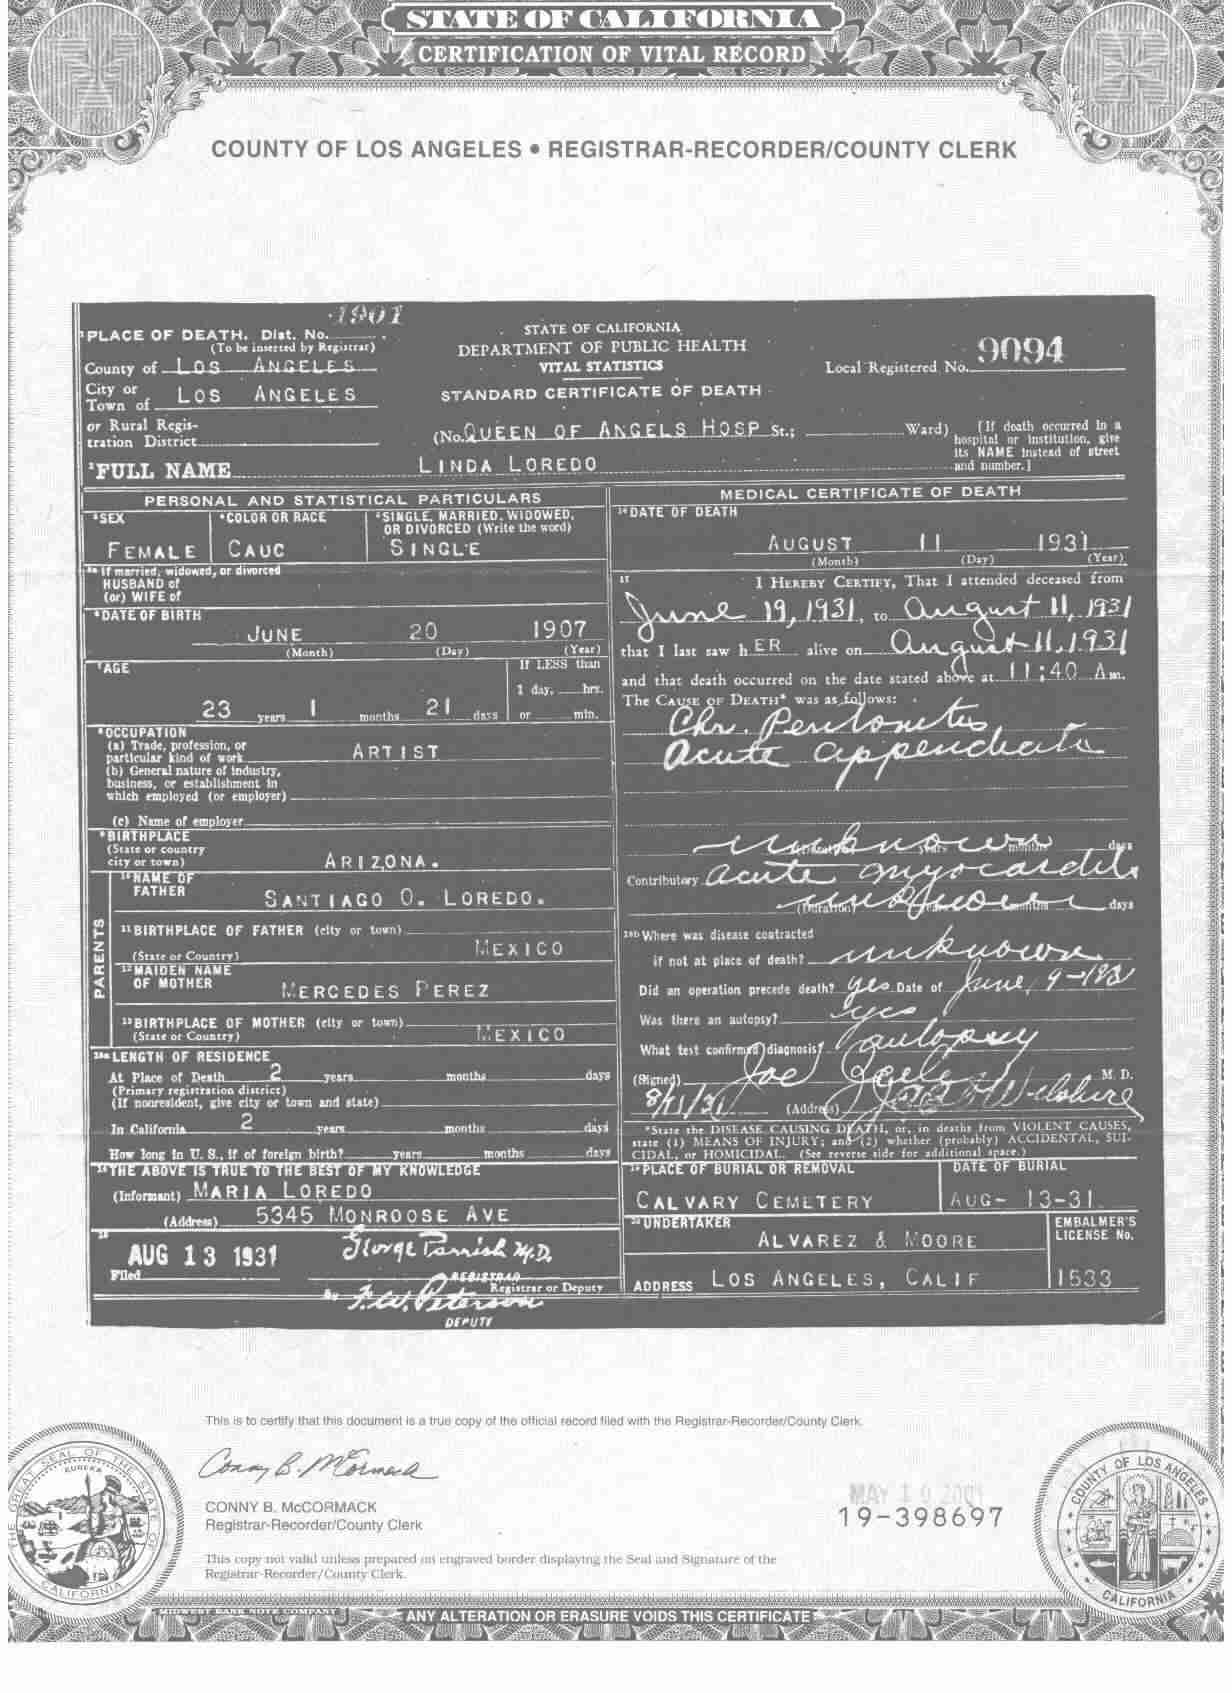 STATE OF CALIFORNIA
CERTIFICATION OF VITAL RECORD
COUNTY OF LOS ANGELES • REGISTRAR-RECORDER/COUNTY CLERK
1901
¹PLACE OF DEATH. Dist. No.
(To be inserted by Registrar)
County of LOS ANGELES
City or
Town of LOS ANGELES
or Rural Regis-
tration District
STATE OF CALIFORNIA
DEPARTMENT OF PUBLIC HEALTH
VITAL STATISTICS
STANDARD CERTIFICATE OF DEATH
Local Registered No. 9094
(No. QUEEN OF ANGELS HOSP St.; Ward)
[If death occurred in a
hospital or institution, give
its NAME instead of street
and number.]
²FULL NAME LINDA LOREDO
PERSONAL AND STATISTICAL PARTICULARS
³SEX
FEMALE
⁴COLOR OR RACE
CAUC
⁵SINGLE, MARRIED, WIDOWED,
OR DIVORCED (Write the word)
SINGLE
⁵ᵃ If married, widowed, or divorced
HUSBAND of
(or) WIFE of
⁶DATE OF BIRTH
JUNE 20 1907
(Month) (Day) (Year)
⁷AGE
23 years 1 months 21 days
If LESS than
1 day, hrs.
or min.
⁸OCCUPATION
(a) Trade, profession, or
particular kind of work ARTIST
(b) General nature of industry,
business, or establishment in
which employed (or employer)
(c) Name of employer
⁹BIRTHPLACE
(State or country
city or town) ARIZONA.
PARENTS
¹⁰NAME OF
FATHER SANTIAGO O. LOREDO.
¹¹BIRTHPLACE OF FATHER (city or town)
(State or Country) MEXICO
¹²MAIDEN NAME
OF MOTHER MERCEDES PEREZ
¹³BIRTHPLACE OF MOTHER (city or town)
(State or Country) MEXICO
¹⁸ᵃ LENGTH OF RESIDENCE
At Place of Death 2 years months days
(Primary registration district)
(If nonresident, give city or town and state)
In California 2 years months days
How long in U. S., if of foreign birth? years months days
¹⁴THE ABOVE IS TRUE TO THE BEST OF MY KNOWLEDGE
(Informant) MARIA LOREDO
(Address) 5345 MONROOSE AVE
¹⁵
AUG 13 1931
Filed
George Parrish M.D.
REGISTRAR
Registrar or Deputy
By F.W. Peterson
DEPUTY
MEDICAL CERTIFICATE OF DEATH
¹⁶DATE OF DEATH
AUGUST 11 1931
(Month) (Day) (Year)
17 I HEREBY CERTIFY, That I attended deceased from
June 19, 1931, to August 11, 1931
that I last saw h ER alive on August 11, 1931
and that death occurred on the date stated above at 11:40 A m.
The CAUSE OF DEATH* was as follows:
Chr. Peritonitis
Acute appendicitis
unknown
(Duration) years months days
Contributory acute myocarditis
unknown
(Duration) years months days
¹⁸ᵇ Where was disease contracted
if not at place of death? unknown
Did an operation precede death? yes Date of June, 9-1931
Was there an autopsy? yes
What test confirmed diagnosis? autopsy
(Signed) Joe M. D.
8/11/31 (Address) Wilshire
*State the DISEASE CAUSING DEATH, or, in deaths from VIOLENT CAUSES,
state (1) MEANS OF INJURY; and (2) whether (probably) ACCIDENTAL, SUI-
CIDAL, or HOMICIDAL. (See reverse side for additional space.)
¹⁹PLACE OF BURIAL OR REMOVAL
CALVARY CEMETERY
DATE OF BURIAL
AUG- 13-31
²⁰UNDERTAKER
ALVAREZ & MOORE
ADDRESS LOS ANGELES, CALIF
EMBALMER'S
LICENSE No.
1533
This is to certify that this document is a true copy of the official record filed with the Registrar-Recorder/County Clerk.
Conny B. McCormack
CONNY B. McCORMACK
Registrar-Recorder/County Clerk
This copy not valid unless prepared on engraved border displaying the Seal and Signature of the
Registrar-Recorder/County Clerk.
MAY 10 2001
19-398697
THE GREAT SEAL OF THE STATE OF CALIFORNIA
EUREKA
COUNTY OF LOS ANGELES
CALIFORNIA
MIDWEST BANK NOTE COMPANY
ANY ALTERATION OR ERASURE VOIDS THIS CERTIFICATE